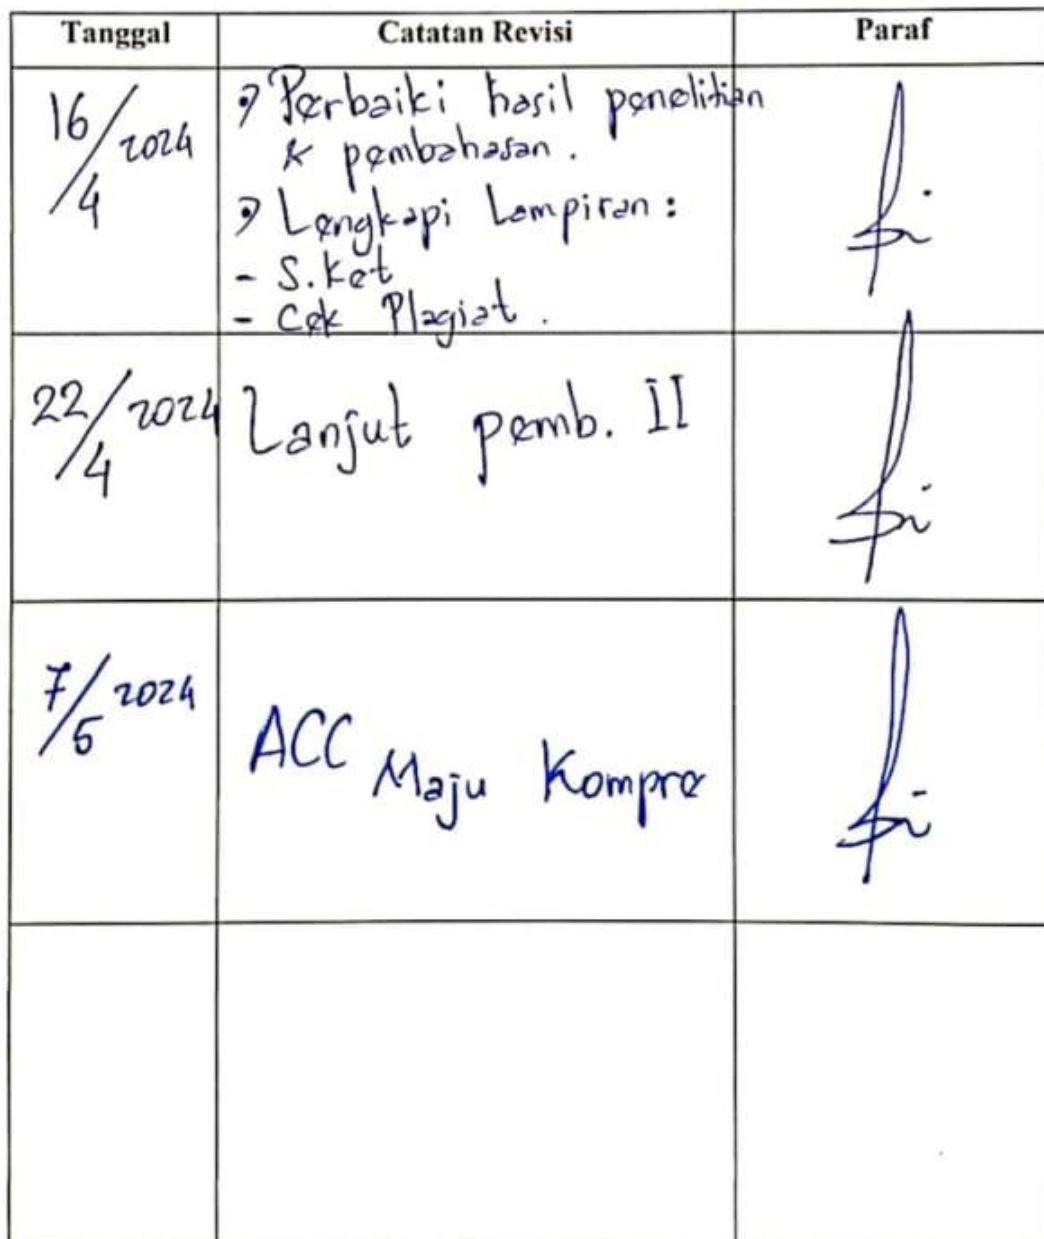 Tanggal Catatan Revisi Paraf
16/4 2024
? Perbaiki hasil penelitian
& pembahasan.
? Lengkapi Lampiran:
- S.Ket
- Cek Plagiat.
22/4 2024 Lanjut pemb. II
7/5 2024 ACC Maju Kompre